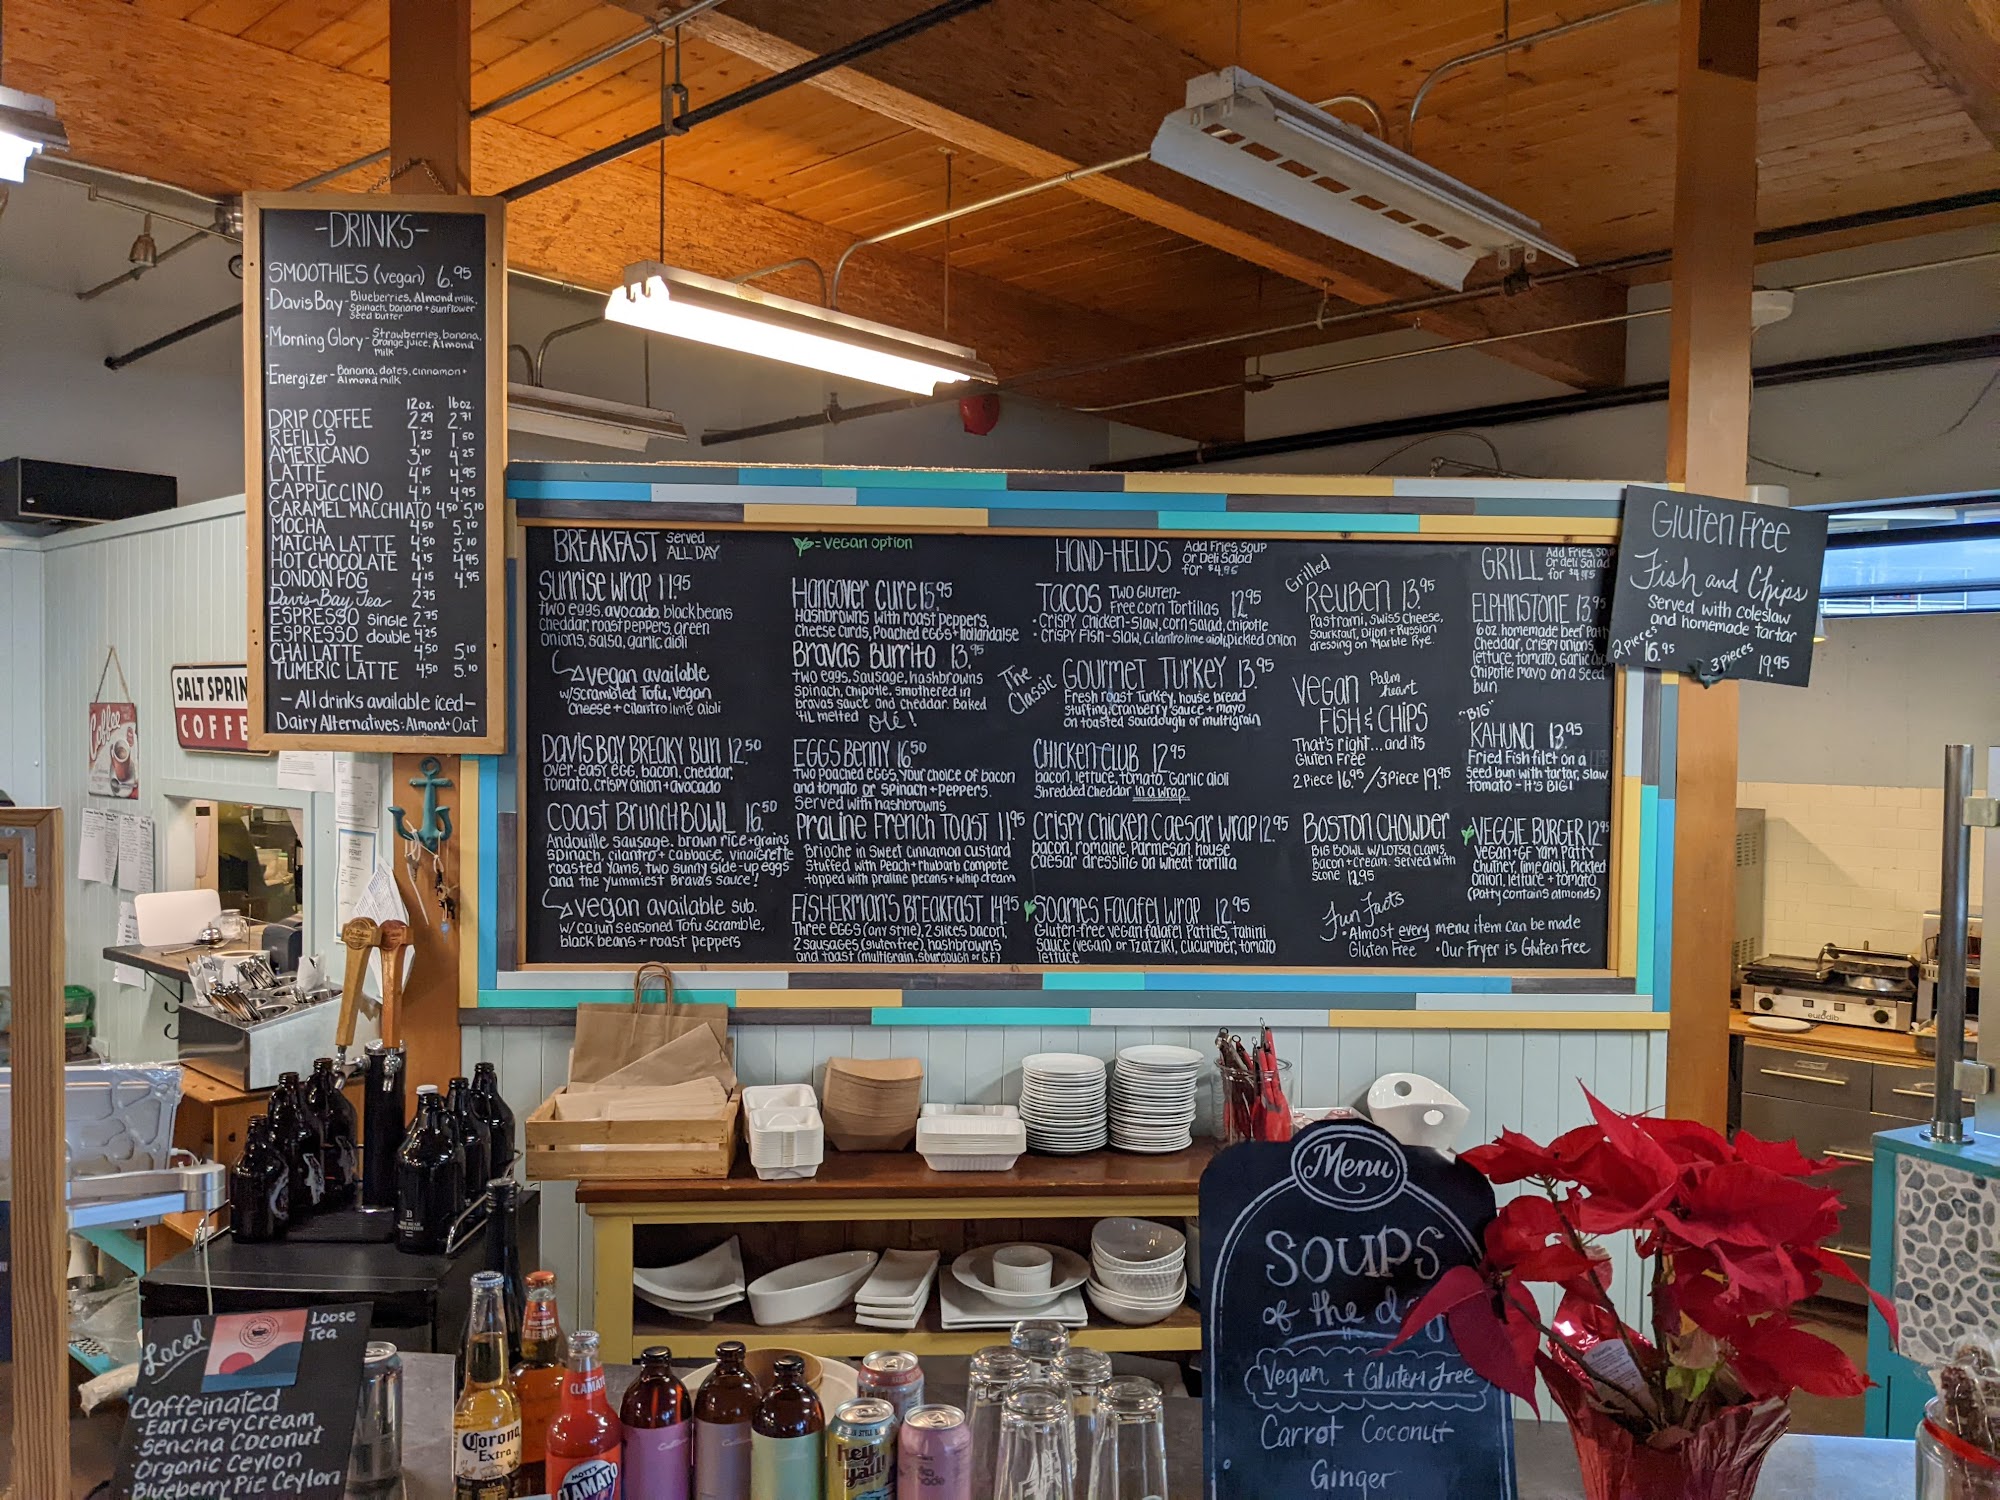 -DRINKS-
SMOOTHIES (vegan) 6.95
·Davis Bay - Blueberries, Almond milk,
Spinach, banana + sunflower
Seed butter
·Morning Glory - Strawberries, banana,
orange juice, Almond
milk
·Energizer - Banana, dates, cinnamon +
Almond milk
12oz. 16oz.
DRIP COFFEE 2.29 2.71
REFILLS 1.25 1.50
AMERICANO 3.10 4.25
LATTE 4.15 4.95
CAPPUCCINO 4.15 4.95
CARAMEL MACCHIATO 4.50 5.10
MOCHA 4.50 5.10
MATCHA LATTE 4.50 5.10
HOT CHOCOLATE 4.15 4.95
LONDON FOG 4.15 4.95
Davis Bay Tea 2.75
ESPRESSO single 2.75
ESPRESSO double 4.25
CHAI LATTE 4.50 5.10
TUMERIC LATTE 4.50 5.10
- All drinks available iced -
Dairy Alternatives: Almond + Oat
SALT SPRIN
COFFE
Coffee
BREAKFAST Served
ALL DAY
SUNRISE WRAP 11.95
two eggs, avocado, black beans
cheddar, roast peppers, green
onions, salsa, garlic aioli
vegan available
w/scrambled Tofu, vegan
cheese + cilantro lime aioli
DAVIS BAY BREAKY BUN 12.50
over-easy egg, bacon, cheddar,
tomato, crispy onion + avocado
COAST BRUNCH BOWL 16.50
Andouille sausage. brown rice + grains
spinach, cilantro + cabbage, vinaigrette
roasted yams, two sunny side-up eggs
and the yummiest Bravas sauce!
vegan available sub.
w/ cajun seasoned Tofu Scramble,
black beans + roast peppers
= vegan option
HANGOVER CURE 15.95
Hashbrowns with roast peppers,
cheese curds, Poached eggs + hollandaise
BRAVAS BURRITO 13.95
two eggs, sausage, hashbrowns
spinach, chipotle, smothered in
bravas sauce and cheddar. Baked
'til melted olé!
EGGS BENNY 16.50
two poached eggs, your choice of bacon
and tomato or spinach + peppers.
Served with hashbrowns
PRALINE FRENCH TOAST 11.95
Brioche in sweet cinnamon custard
Stuffed with Peach + rhubarb compote
topped with praline pecans + whip cream
FISHERMAN'S BREAKFAST 14.95
Three eggs (any style), 2 slices bacon,
2 sausages (gluten free), hashbrowns
and toast (multigrain, sourdough or G.F)
HAND-HELDS Add Fries, soup
or Deli Salad
for $4.95
TACOS TWO GLUTEN-
Free corn Tortillas. 12.95
· CRISPY Chicken-slaw, corn salad, chipotle
· CRISPY FISH-slaw, cilantro lime aioli, Pickled onion
The Classic
GOURMET TURKEY 13.95
Fresh roast Turkey, house bread
stuffing, cranberry sauce + mayo
on toasted sourdough or multigrain
CHICKEN CLUB 12.95
bacon, lettuce, tomato, Garlic aioli
Shredded cheddar in a wrap
CRISPY CHICKEN CAESAR WRAP 12.95
bacon, romaine, Parmesan, house
caesar dressing on wheat tortilla
SOAMES FALAFEL WRAP 12.95
Gluten-free vegan falafel Patties, tahini
sauce (vegan) or Tzatziki, cucumber, tomato
lettuce
Grilled
REUBEN 13.95
Pastrami, Swiss cheese,
sourkraut, Dijon + Russian
dressing on Marble Rye.
VEGAN Palm
heart
FISH & CHIPS
That's right...and its
Gluten Free
2 Piece 16.95 / 3 Piece 19.95
BOSTON CHOWDER
BIG BOWL w/LOTSA CLAMS,
Bacon + Cream. served with
scone 12.95
Fun Facts
· Almost every menu item can be made
Gluten Free · Our Fryer is Gluten Free
GRILL Add Fries, Sou
or deli salad
for $4.95
ELPHINSTONE 13.95
6oz. homemade beef Patty
cheddar, crispy onions,
lettuce, tomato, Garlic aioli
Chipotle mayo on a seed
bun
"BIG"
KAHUNA 13.95
Fried Fish filet on a
Seed bun with tartar, slaw
tomato - It's BIG!
VEGGIE BURGER 12.95
vegan + GF Yam Patty
chutney, lime aioli, Pickled
onion, lettuce + tomato
(Patty contains almonds)
Gluten Free
Fish and Chips
Served with coleslaw
and homemade tartar
2 pieces 16.95
3 pieces 19.95
eurodib
Menu
SOUPS
of the day
Vegan + Gluten Free
Carrot Coconut
Ginger
Local
Loose
Tea
Caffeinated
·Earl Grey Cream
·Sencha Coconut
·Organic Ceylon
·Blueberry Pie Ceylon
Corona
Extra
CLAMATO
MOTT'S
CLAMATO
hey
y'all